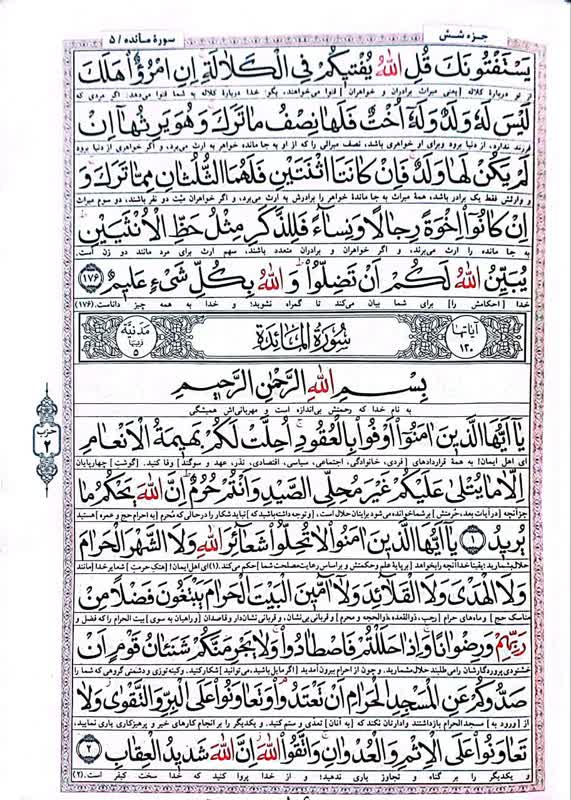 جزء شش
سورهٔ مائده / ۵
يَسْتَفْتُونَكَ قُلِ اللّٰهُ يُفْتيكُمْ فِي الْكَلَالَةِ إِنِ امْرُؤٌا هَلَكَ
از تو دربارهٔ کلاله [یعنی میراث برادران و خواهران] فتوا می‌خواهند، بگو: خدا دربارهٔ کلاله به شما فتوا می‌دهد: اگر مردی که
لَيْسَ لَهُ وَلَدٌ وَلَهُ أُخْتٌ فَلَهَا نِصْفُ مَا تَرَكَ وَهُوَ يَرِثُهَا إِنْ
فرزند ندارد، از دنیا برود وبرای او خواهری باشد، نصف میراثی را که از او به جا مانده خواهر به ارث می‌برد، و اگر خواهری از دنیا برود
لَمْ يَكُنْ لَهَا وَلَدٌ فَإِنْ كَانَتَا اثْنَتَيْنِ فَلَهُمَا الثُّلُثَانِ مِمَّا تَرَكَ وَ
و وارثش فقط یک برادر باشد، همهٔ میراث به جا ماندهٔ خواهر را برادرش به ارث می‌برد، و اگر خواهران میّت دو نفر باشند، دو سوم میراث
إِنْ كَانُوا إِخْوَةً رِجَالًا وَنِسَاءً فَلِلذَّكَرِ مِثْلُ حَظِّ الْأُنْثَيَيْنِ
به جا مانده را ارث می‌برند، و اگر خواهران و برادران متعدد باشند، سهم ارث برای مرد مانند دو زن است.
يُبَيِّنُ اللّٰهُ لَكُمْ أَنْ تَضِلُّوا وَ اللّٰهُ بِكُلِّ شَيْءٍ عَليمٌ ۱۷۶
خدا [احکامش را] برای شما بیان می‌کند تا گمراه نشوید؛ و خدا به همه چیز داناست. (۱۷۶)
آیاتها ۱۲۰
سُورَةُ الْمَائِدَةِ
مَدَنِيَّة ۵
بِسْمِ اللّٰهِ الرَّحْمٰنِ الرَّحيمِ
به نام خدا که رحمتش بی‌اندازه است و مهربانی‌اش همیشگی
يَا أَيُّهَا الَّذينَ امَنُوا أَوْفُوا بِالْعُقُودِ أُحِلَّتْ لَكُمْ بَهيمَةُ الْأَنْعَامِ
ای اهل ایمان! به همهٔ قراردادهای [فردی، خانوادگی، اجتماعی، سیاسی، اقتصادی، نذر، عهد و سوگند] وفا کنید. [گوشتِ] چهارپایان
إِلَّا مَا يُتْلٰى عَلَيْكُمْ غَيْرَ مُحِلِّي الصَّيْدِ وَأَنْتُمْ حُرُمٌ إِنَّ اللّٰهَ يَحْكُمُ مَا
جز آنچه [در آیات بعد، حُرمتش] بر شما خوانده می‌شود برایتان حلال است، [و توجه داشته باشید که] نباید شکار را در حالی که مُحرِم [به احرام حج و عمره] هستید
يُريدُ ۱ يَا أَيُّهَا الَّذينَ امَنُوا لَا تُحِلُّوا شَعَائِرَ اللّٰهِ وَلَا الشَّهْرَ الْحَرَامَ
حلال شمارید؛ یقیناً خدا آنچه را بخواهد [بر پایهٔ علم و حکمتش و بر اساس رعایت مصلحت شما] حکم می‌کند. (۱) ای اهل ایمان! [هتک حرمتِ] شعایر خدا [مانند
وَلَا الْهَدْيَ وَلَا الْقَلَائِدَ وَلَا آمّينَ الْبَيْتَ الْحَرَامَ يَبْتَغُونَ فَضْلًا مِنْ
مناسک حج] و ماه‌های حرام [رجب، ذوالقعده، ذوالحجه و محرم] و قربانی بی‌نشان، و قربانی نشان‌دار و قاصدان [و راهیان به سوی] بیت الحرام را که فضل و
رَبِّهِمْ وَرِضْوَانًا وَإِذَا حَلَلْتُمْ فَاصْطَادُوا وَلَا يَجْرِمَنَّكُمْ شَنَئَانُ قَوْمٍ أَنْ
خشنودی پروردگارشان را می‌طلبند حلال مشمارید. و چون از احرام بیرون آمدید [اگر مایل باشید، می‌توانید] شکار کنید. و کینه توزی و دشمنی گروهی که شما را
صَدُّوكُمْ عَنِ الْمَسْجِدِ الْحَرَامِ أَنْ تَعْتَدُوا وَتَعَاوَنُوا عَلَى الْبِرِّ وَالتَّقْوٰى وَلَا
از [ورود به] مسجد الحرام بازداشتند وادارتان نکند که [به آنان] تعدی و ستم کنید. و یکدیگر را بر انجام کارهای خیر و پرهیزکاری یاری نمایید،
تَعَاوَنُوا عَلَى الْإِثْمِ وَالْعُدْوَانِ وَاتَّقُوا اللّٰهَ إِنَّ اللّٰهَ شَديدُ الْعِقَابِ ۲
و یکدیگر را بر گناه و تجاوز یاری ندهید؛ و از خدا پروا کنید که خدا سخت کیفر است. (۲)
حزب ۲